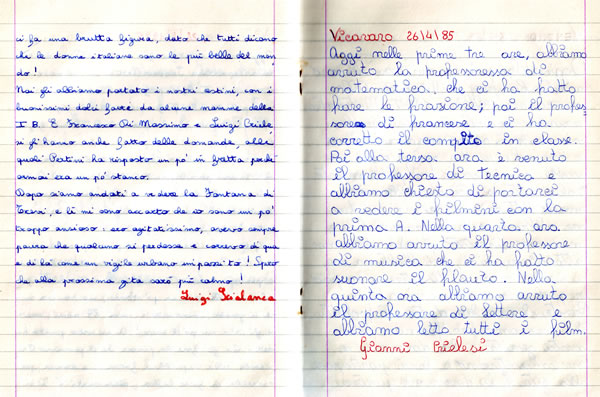 ci fa una brutta figura, dato che tutti dicono
che le donne italiane sono le più belle del mon
do!
Noi gli abbiamo portato i nostri cestini, con i
buonissimi dolci fatti da alcune mamme della
I B. E Francesco Di Massimo e Luigi
gli hanno anche fatto delle domande, alle
quali Pertini ha risposto un po' in fretta perché
ormai era un po' stanco.
Dopo siamo andati a vedere la Fontana di
Trevi, e lì mi sono accorto che io sono un po'
troppo ansioso: ero agitatissimo, avevo sempre
paura che qualcuno si perdesse e correvo di qua
e di là come un vigile urbano impazzito! Spero
che alla prossima gita sarò più calmo!
Luigi Scialanca
Vicovaro 26/4/85
Oggi nelle prime tre ore, abbiamo
avuto la professoressa di
matematica, che ci ha fatto
fare le frazione; poi il profes
sore di francese e ci ha
corretto il compito in classe.
Poi alla terza ora è venuto
il professore di tecnica e
abbiamo chiesto di portarci
a vedere i filmini con la
prima A. Nella quarta ora
abbiamo avuto il professore
di musica che ci ha fatto
suonare il flauto. Nella
quinta ora abbiamo avuto
il professore di lettere e
abbiamo letto tutti i film.
Gianni Crielesi